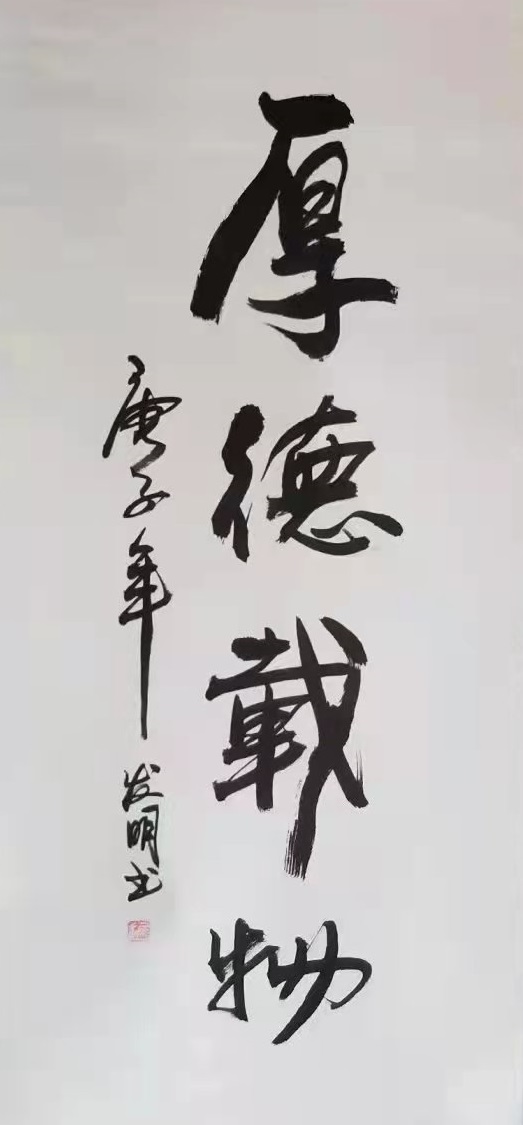 厚德載物
庚子年 发明书